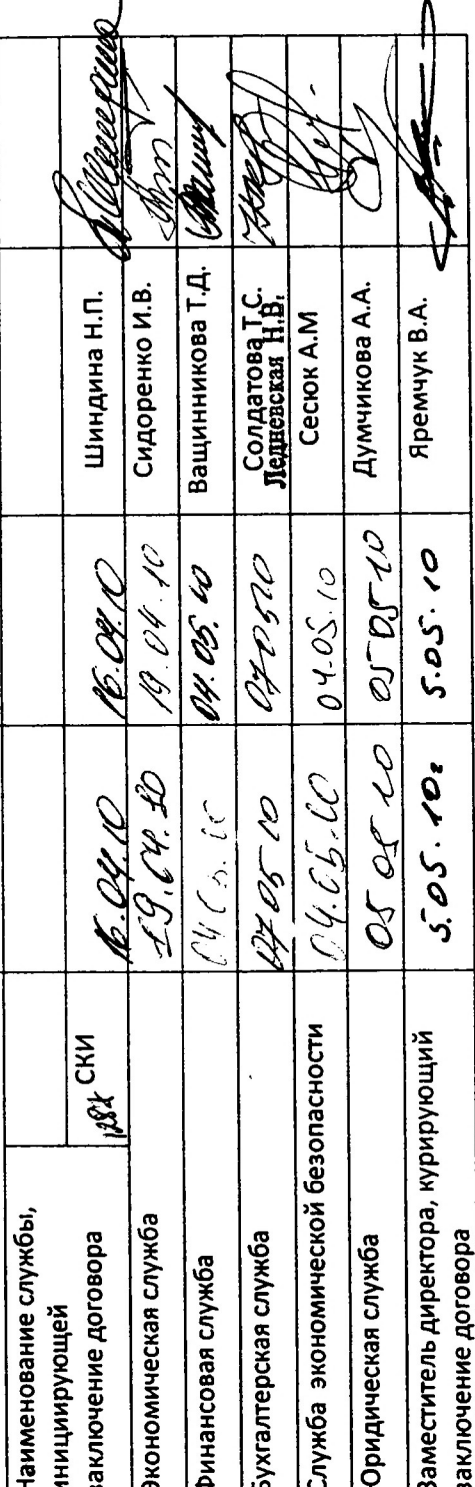 Наименование службы,
инициирующей
заключение договора СКИ 16.04.10 16.04.10 Шиндина Н.П.
Экономическая служба 19.04.10 19.04.10 Сидоренко И.В.
Финансовая служба 04.05.10 04.05.10 Ващинникова Т.Д.
Бухгалтерская служба 07 05 10 07 05 10 Солдатова Т.С.
Ледневская Н.В.
Служба экономической безопасности 04.05.10 04.05.10 Сесюк А.М
Юридическая служба 05 05 10 05 05 10 Думчикова А.А.
Заместитель директора, курирующий
заключение договора 5.05.10г 5.05.10 Яремчук В.А.